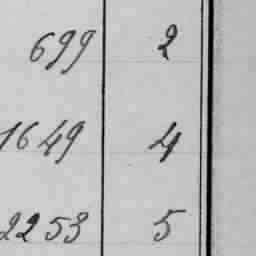 699 2
1649 4
2253 5